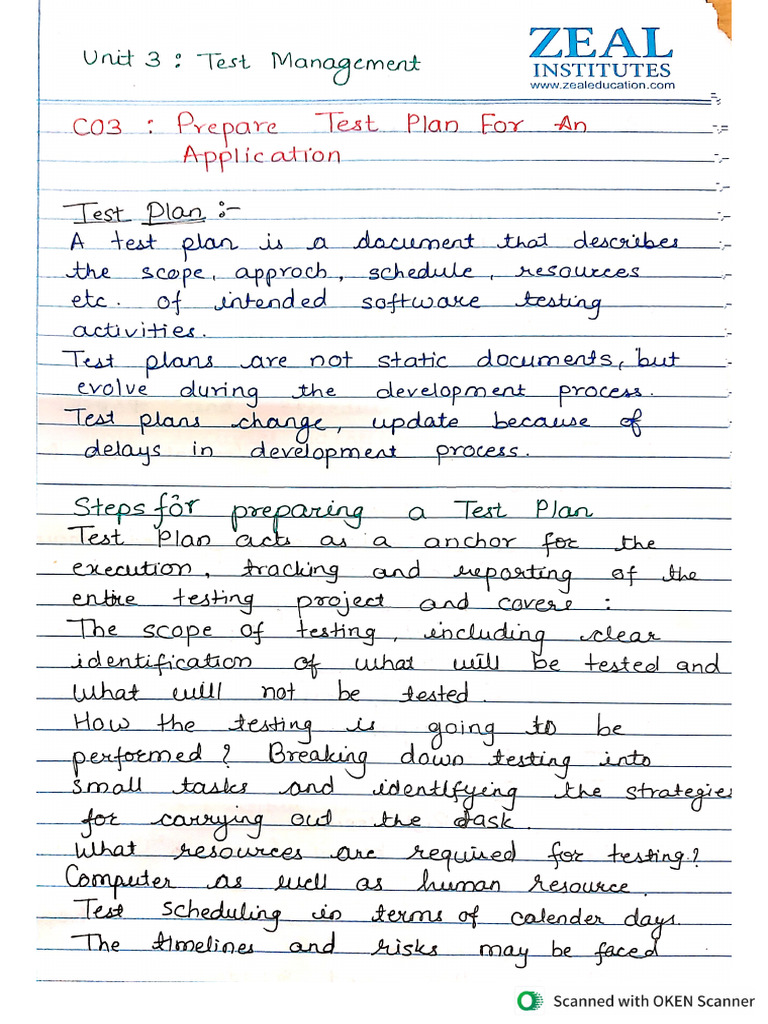 Unit 3 : Test Management
ZEAL
INSTITUTES
www.zealeducation.com
CO3 : Prepare Test Plan For An
Application
Test Plan :-
A test plan is a document that describes
the scope, approch, schedule, resources
etc. of intended software testing
activities.
Test plans are not static documents, but
evolve during the development process.
Test plans change, update because of
delays in development process.
Steps for preparing a Test Plan
Test Plan acts as a anchor for the
execution, tracking and reporting of the
entire testing project and covers :
The scope of testing, including clear
identification of what will be tested and
what will not be tested.
How the testing is going to be
performed? Breaking down testing into
small tasks and identifying the strategies
for carrying out the task.
What resources are required for testing?
Computer as well as human resource.
Test scheduling in terms of calender days.
The timelines and risks may be faced
Scanned with OKEN Scanner